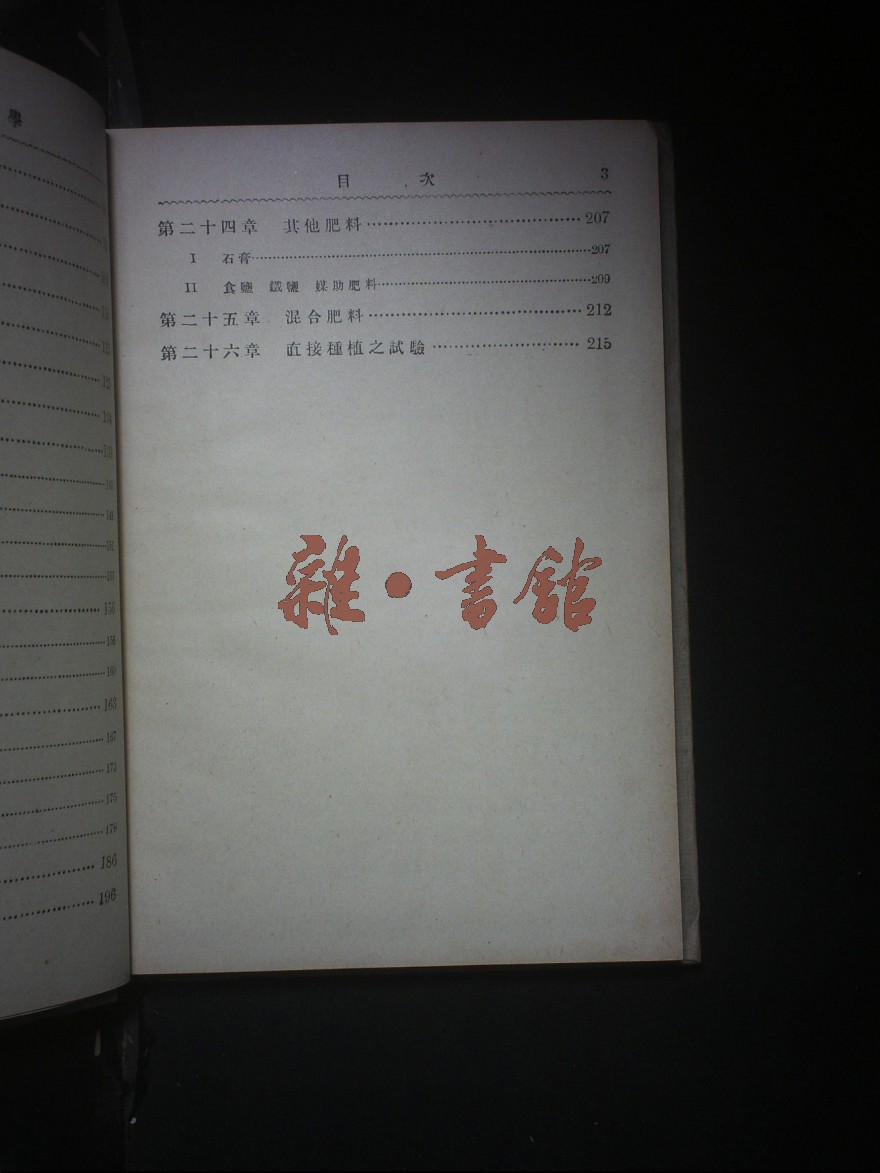 學
156
158
160
163
167
173
175
178
186
196
目 次 3
第二十四章 其他肥料 207
I 石膏 207
II 食鹽 鐵鹽 媒助肥料 209
第二十五章 混合肥料 212
第二十六章 直接種植之試驗 215
雜·書館